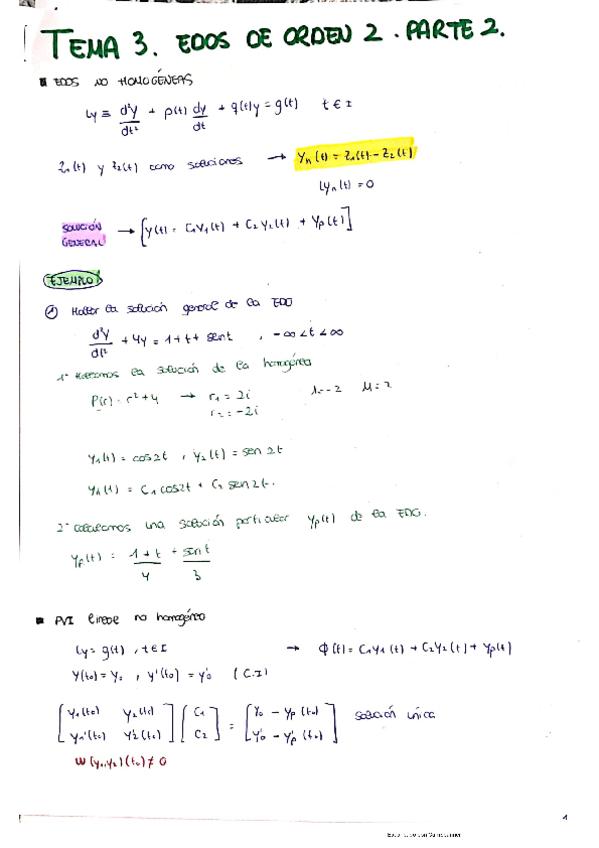 TEMA 3. EDOS DE ORDEN 2. PARTE 2.
EDOS NO HOMOGÉNEAS
Ly ≡ d²y/dt² + p(t) dy/dt + q(t)y = g(t) t ∈ I
Z₁(t) y Z₂(t) como soluciones → Yₕ(t) = Z₁(t) - Z₂(t)
Lyₕ(t) = 0
SOLUCIÓN GENERAL → [y(t) = C₁Y₁(t) + C₂Y₂(t) + Yp(t)]
EJEMPLO
① Hallar la solución general de la EDO
d²y/dt² + 4y = 1 + t + sent , -∞ < t < ∞
1º Hallamos la solución de la homogénea
P(r) = r² + 4 → r₁ = 2i
r₂ = -2i
μ = 2
Y₁(t) = cos2t , Y₂(t) = sen 2t
Yₕ(t) = C₁ cos2t + C₂ sen 2t.
2º Calculamos una solución particular Yp(t) de la EDO.
Yp(t) = (1 + t)/4 + sint/3
PVI lineal no homogéneo
Ly = g(t) , t ∈ I → ϕ(t) = C₁Y₁(t) + C₂Y₂(t) + Yp(t)
Y(t₀) = Y₀ , y'(t₀) = y'₀ (C.I)
[Y₁(t₀) Y₂(t₀)] [C₁] = [Y₀ - Yp(t₀)] solución única
[Y₁'(t₀) Y₂'(t₀)] [C₂] [Y'₀ - Y'p(t₀)]
W(y₁,y₂)(t₀) ≠ 0
1